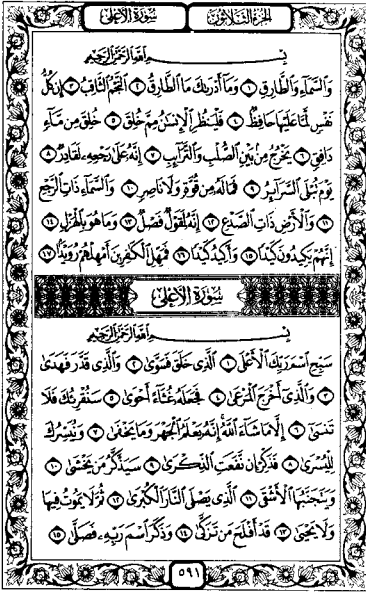 سُورَةُ الأَعْلَى
الجُزْءُ الثَّلَاثُونَ
بِسْمِ اللَّهِ الرَّحْمَٰنِ الرَّحِيمِ
وَالسَّمَاءِ وَالطَّارِقِ ١ وَمَا أَدْرَىٰكَ مَا الطَّارِقُ ٢ النَّجْمُ الثَّاقِبُ ٣ إِن كُلُّ
نَفْسٍ لَّمَّا عَلَيْهَا حَافِظٌ ٤ فَلْيَنظُرِ الْإِنسَٰنُ مِمَّ خُلِقَ ٥ خُلِقَ مِن مَّاءٍ
دَافِقٍ ٦ يَخْرُجُ مِن بَيْنِ الصُّلْبِ وَالتَّرَائِبِ ٧ إِنَّهُ عَلَىٰ رَجْعِهِ لَقَادِرٌ ٨
يَوْمَ تُبْلَى السَّرَائِرُ ٩ فَمَا لَهُ مِن قُوَّةٍ وَلَا نَاصِرٍ ١٠ وَالسَّمَاءِ ذَاتِ الرَّجْعِ
١١ وَالْأَرْضِ ذَاتِ الصَّدْعِ ١٢ إِنَّهُ لَقَوْلٌ فَصْلٌ ١٣ وَمَا هُوَ بِالْهَزْلِ ١٤
إِنَّهُمْ يَكِيدُونَ كَيْدًا ١٥ وَأَكِيدُ كَيْدًا ١٦ فَمَهِّلِ الْكَٰفِرِينَ أَمْهِلْهُمْ رُوَيْدًا ١٧
سُورَةُ الأَعْلَى
بِسْمِ اللَّهِ الرَّحْمَٰنِ الرَّحِيمِ
سَبِّحِ اسْمَ رَبِّكَ الْأَعْلَى ١ الَّذِي خَلَقَ فَسَوَّىٰ ٢ وَالَّذِي قَدَّرَ فَهَدَىٰ
٣ وَالَّذِي أَخْرَجَ الْمَرْعَىٰ ٤ فَجَعَلَهُ غُثَاءً أَحْوَىٰ ٥ سَنُقْرِئُكَ فَلَا
تَنسَىٰ ٦ إِلَّا مَا شَاءَ اللَّهُ إِنَّهُ يَعْلَمُ الْجَهْرَ وَمَا يَخْفَىٰ ٧ وَنُيَسِّرُكَ
لِلْيُسْرَىٰ ٨ فَذَكِّرْ إِن نَّفَعَتِ الذِّكْرَىٰ ٩ سَيَذَّكَّرُ مَن يَخْشَىٰ ١٠
وَيَتَجَنَّبُهَا الْأَشْقَى ١١ الَّذِي يَصْلَى النَّارَ الْكُبْرَىٰ ١٢ ثُمَّ لَا يَمُوتُ فِيهَا
وَلَا يَحْيَىٰ ١٣ قَدْ أَفْلَحَ مَن تَزَكَّىٰ ١٤ وَذَكَرَ اسْمَ رَبِّهِ فَصَلَّىٰ ١٥
٥٩١